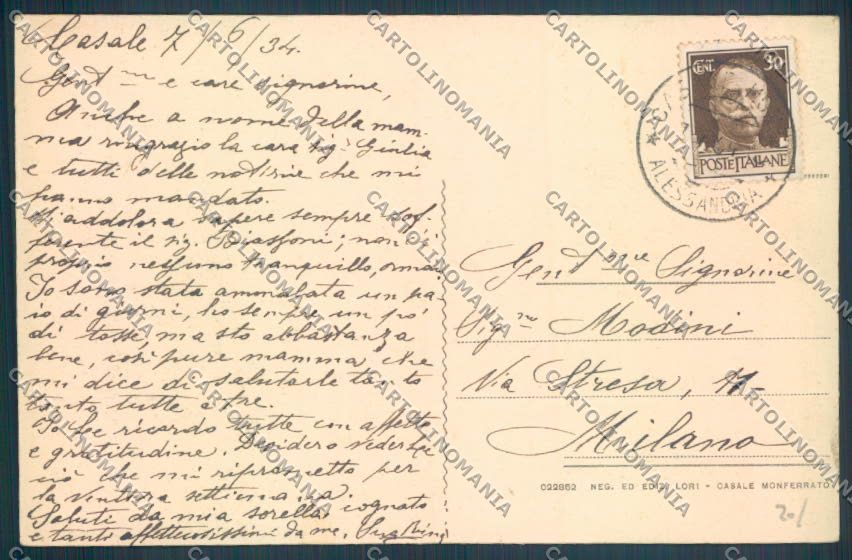 Casale 7/6/34.
Gent.me e care signorine,
Anche a nome della mam-
ma ringrazio la cara sig. Giulia
e tutti delle notizie che mi
hanno mandato.
M'addolora sapere sempre sof-
ferente il sig. non c'è
proprio nessuno tranquillo, ormai
Io sono stata ammalata un pa-
io di giorni, ho sempre un po'
di tosse, ma sto abbastanza
bene, così pure mamma che
mi dice di salutarle tanto
tanto tutte e tre.
Io Le ricordo tutte con affetto
e gratitudine. Desidero vederLe
ciò che mi riprometto per
la ventura settimana.
Saluti da mia sorella, cognato
e tanti affettuosissimi da me,
CENT. 30
POSTE ITALIANE
ALESSANDRIA
Gent.me Signorine
Sig.ne Modini
Via Stresa, 11-
Milano
022862 NEG. ED EDIZ. LORI - CASALE MONFERRATO
20/
CARTOLINOMANIA